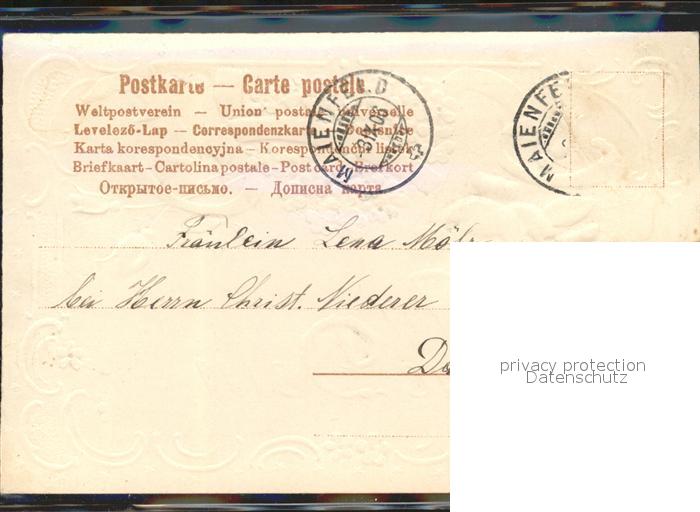 Postkarte — Carte postale.
Weltpostverein — Union postale universelle
Levelező-Lap — Correspondenzkarte — Dopisnice
Karta korespondencyjna — Korespondenční lístek
Briefkaart — Cartolina postale — Post card — Brefkort
Открытое-письмо. — Дописна карта
MAIENFELD
MAIENFE
Fräulein Lena
bei Herrn Christ. Niederer
privacy protection
Datenschutz